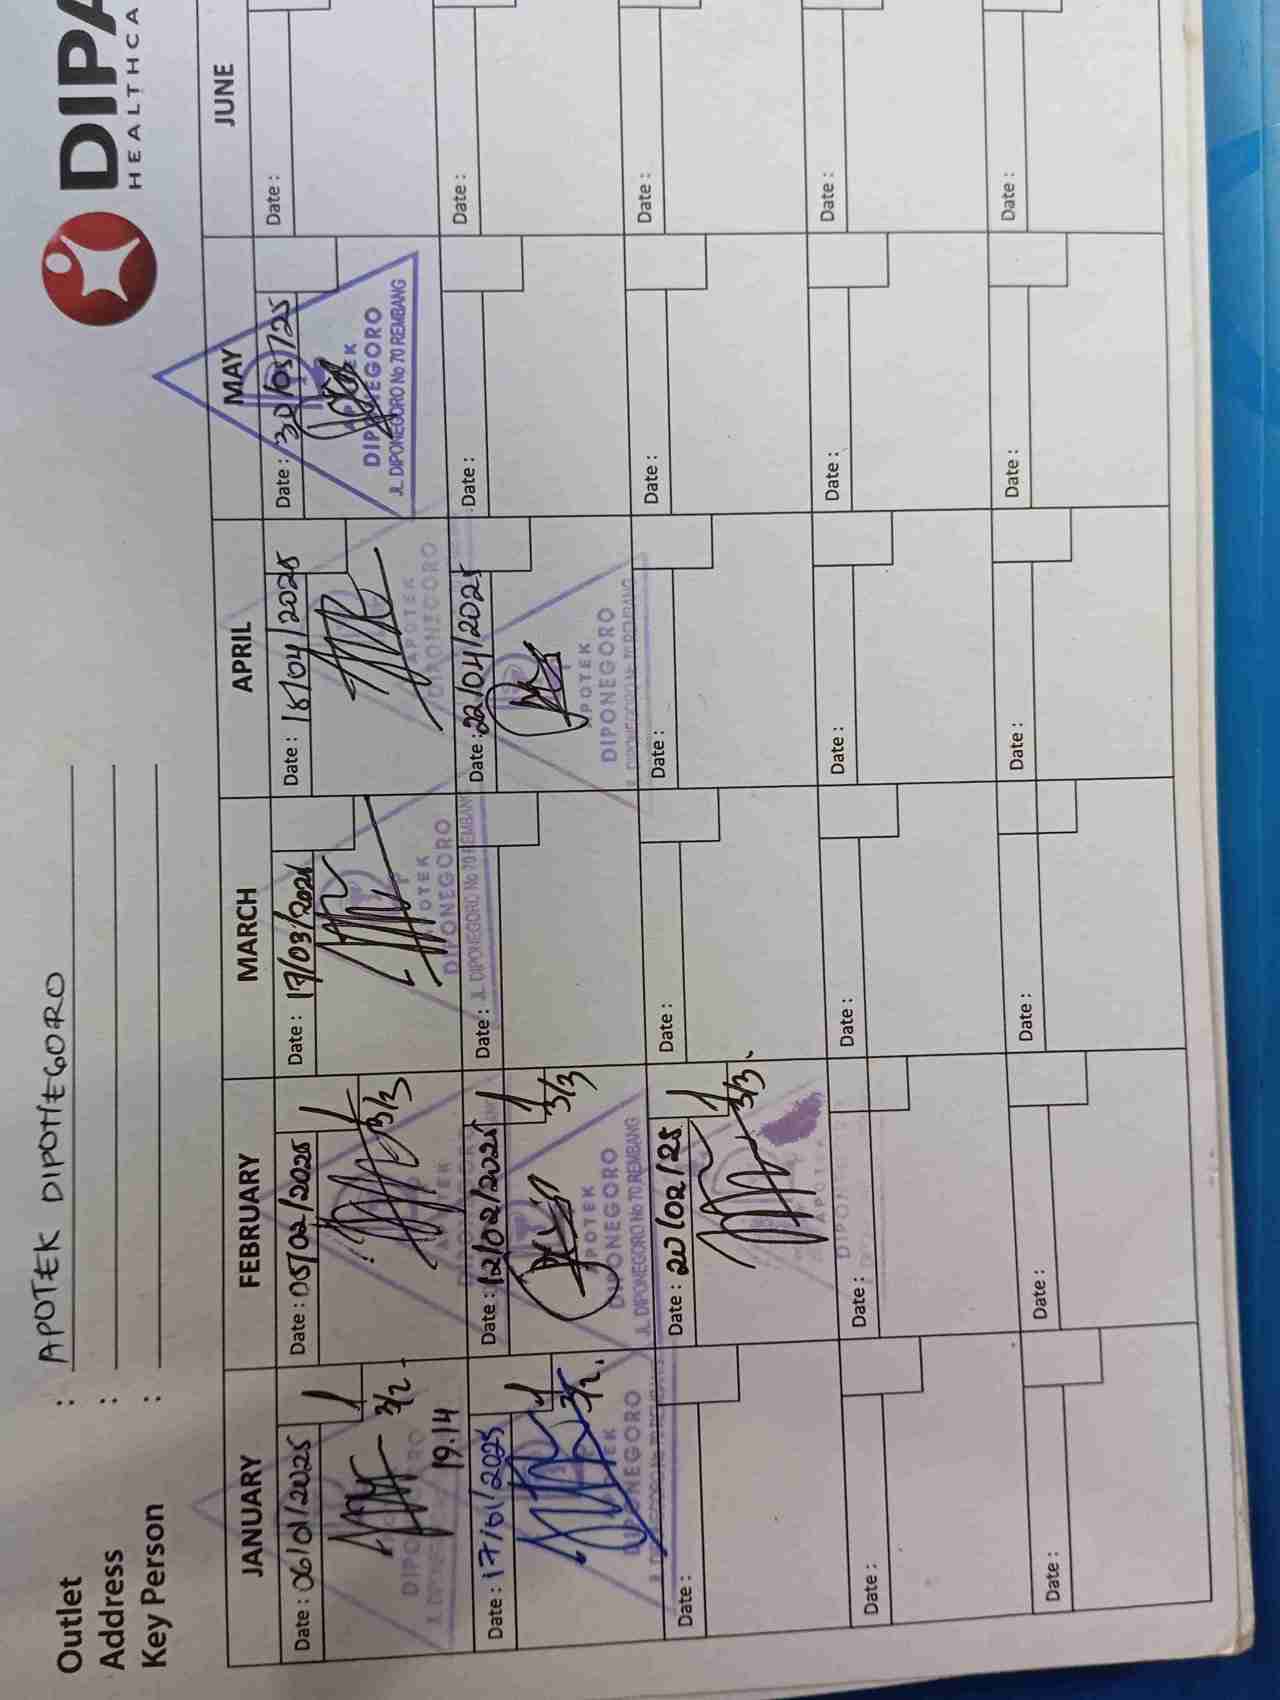 DIPA
HEALTHCA
Outlet : APOTEK DIPONEGORO
Address :
Key Person :
JANUARY FEBRUARY MARCH APRIL MAY JUNE
Date : 06/01/2025 Date : 05/02/2025 Date : 17/03/2025 Date : 15/04/2025 Date : 30/05/25 Date :
3/2 3/3
19.14
APOTEK
DIPONEGORO
JL. DIPONEGORO No 70 REMBANG
Date : 17/01/2025 Date : 12/02/2025 Date : Date : 22/04/2025 Date : Date :
3/2 3/3
APOTEK
DIPONEGORO
JL. DIPONEGORO No 70 REMBANG
Date : Date : 20/02/25 Date : Date : Date : Date :
3/3
Date : Date : Date : Date : Date : Date :
Date : Date : Date : Date : Date : Date :